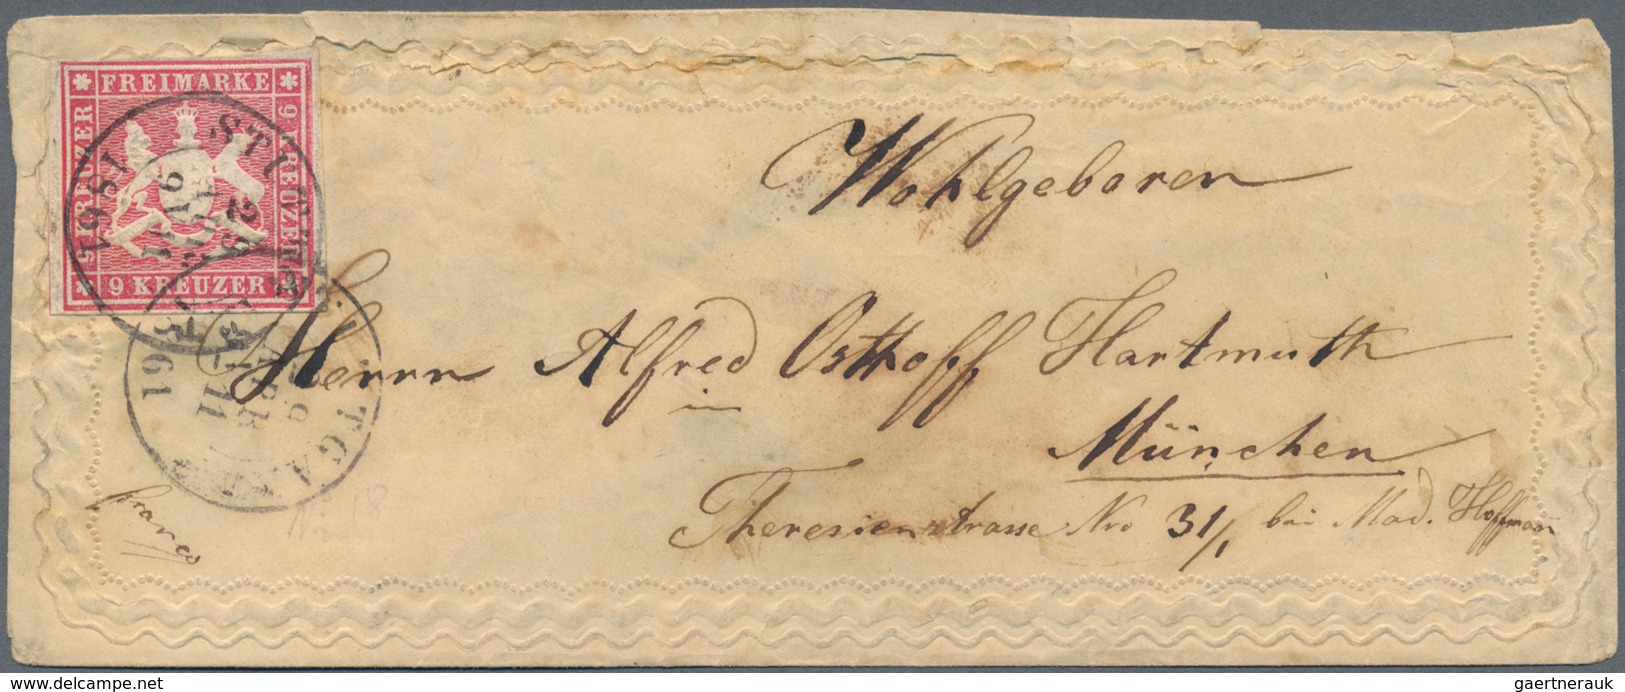 FREIMARKE
9 KREUZER
9 KREUZER
9 KREUZER
1861
29
Wohlgeboren
Herrn Alfred Osthoff Hartmuth
in
München
Theresienstrasse Nro 31/1 bei Mad. Hoffmann
franco
www.delcampe.net
gaertnerauk